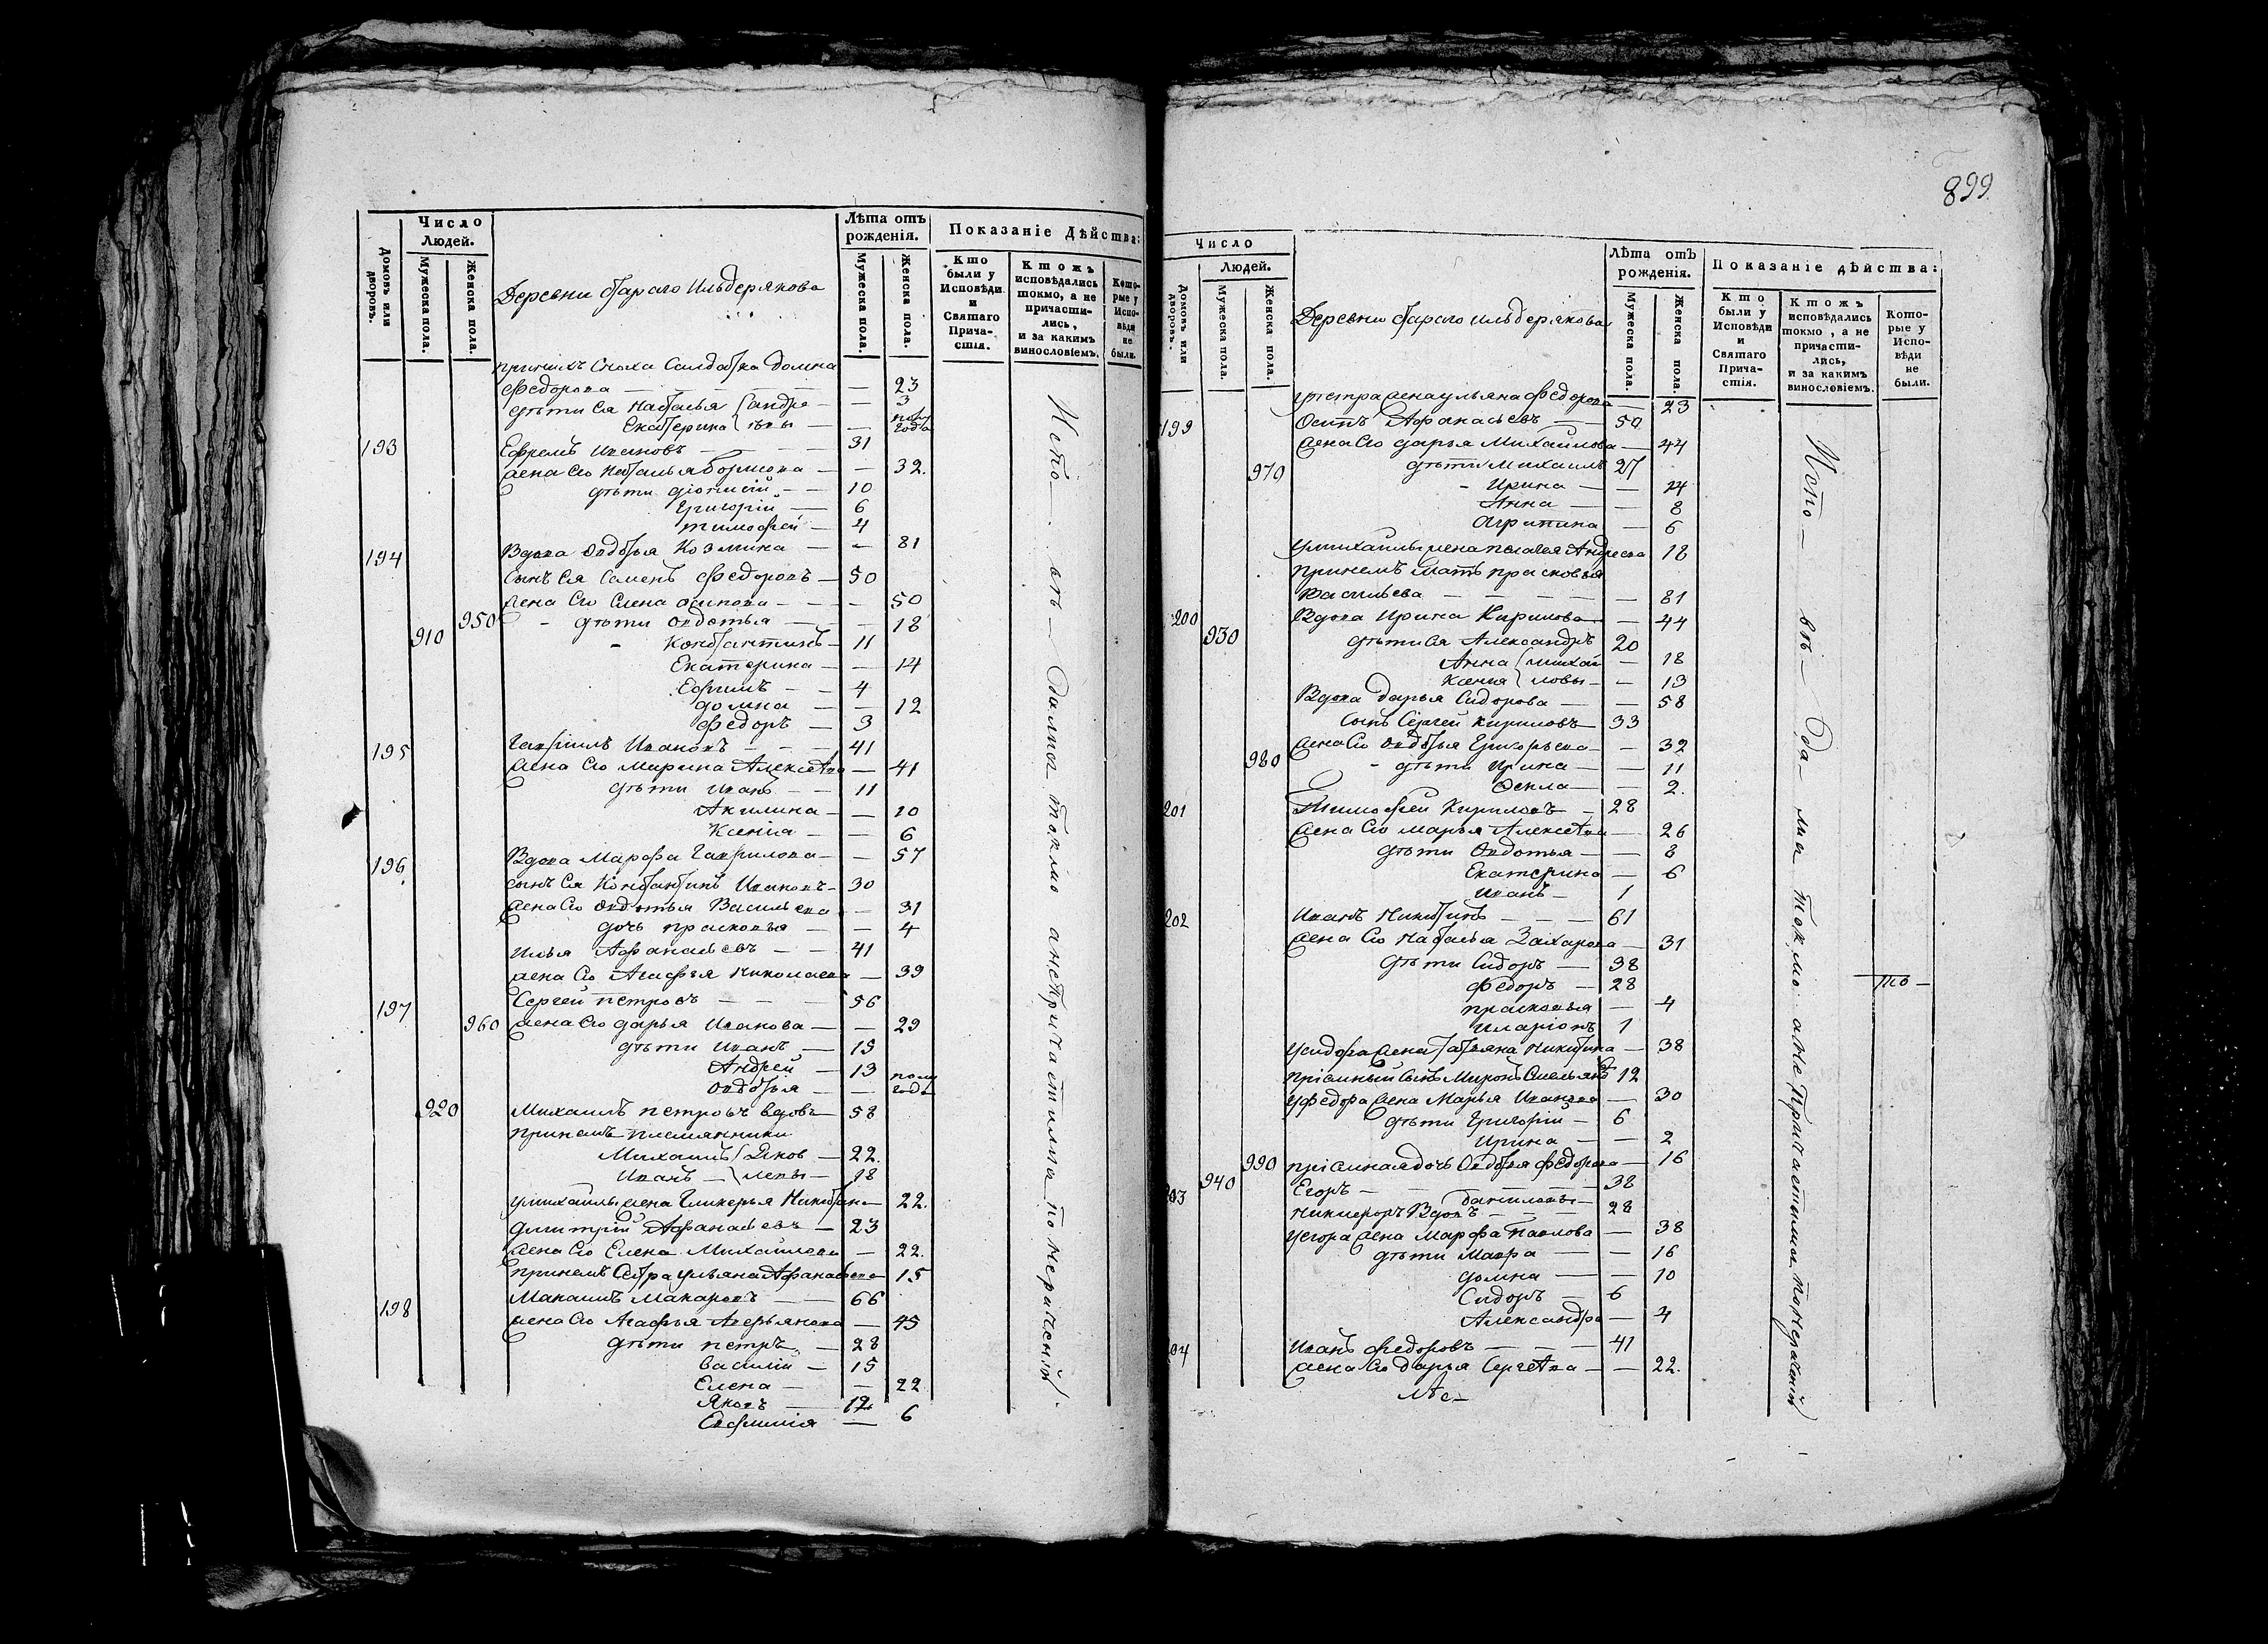 Число Людей.
Лѣта отъ рожденія.
Показаніе Дѣйства:
Домовъ или дворовъ.
Мужеска пола.
Женска пола.
Деревни Стараго Ильдерякова
Мужеска пола.
Женска пола.
Кто были у Исповѣди и Святаго Причастія.
Ктожъ исповѣдались токмо, а не причастились, и за какимъ винословіемъ.
Которые у Исповѣди не были.
принихъ Сноха Салдатка домна
Федорова — — 23
дѣти Ея Наталья Андре — — 3
Екатерина евы — — полу года
193 Ефремъ Ивановъ — 31
жена Его Наталья — — 32.
дѣти дїонисїй — 10
Григорїй — 6
тимофей — 4
194 Вдова Овдотья Козмина — — 81
Сынъ Ея Семенъ Федоровъ — 50
жена Его Елена осипова — — 50
950 дѣти Овдотья — — 18
910 Константинъ — 11
Екатерина — — 14
Ефимъ — 4
домна — — 12
Федоръ — 3
195 Гаврїилъ Ивановъ — 41
жена Его Марина Алексѣева — 41
дѣти Иванъ — 11
Акилина — — 10
Ксенїа — — 6
196 Вдова Марфа Гаврилова — — 57
сынъ Ея Константинъ Ивановъ — 30
жена Его Овдотья Васильева — 31
дочь прасковья — — 4
Илья Афанасьевъ — 41
жена Его Агафья Николаева — 39
197 Сергей петровъ — 56
960 жена Его дарья Иванова — — 29
дѣти Иванъ — 15
Андрей — 13
Овдотья — — полу года
920 Михаилъ петровъ вдовъ — 58
принемъ племянники
Михаилъ Яков — 22.
Иванъ левы — 18
умихаилы жена Гликерья Никитина 22.
димитрїй Афанасьевъ — 23
жена Его Елена Михайлова — 22.
принемъ Сестра ульяна Афанасьева 15
198 Макаровъ — 66
жена Его Агафья Аверьянова — 45
дѣти петръ — 28
василїй — 15
Елена — — 22
Яковъ — 12
Евфимїя — 6
Исто— вѣ— дались токмо анепричастились понерачению
899
Число Людей.
Лѣта отъ рожденія.
Показаніе дѣйства:
Домовъ или дворовъ.
Мужеска пола.
Женска пола.
Деревни Стараго Ильдерякова
Мужеска пола.
Женска пола.
Кто были у Исповѣди и Святаго Причастія.
Ктожъ исповѣдались токмо, а не причастились, и за какимъ винословіемъ.
Которые у Исповѣди не были.
упетра жена ульяна Федорова — 23
199 Осипъ Афанасьевъ — 50
жена Его дарья Михаилова — 44
970 дѣти Михаилъ 27
Ирина — — 14
Анна — — 8
Агрипина — 6
умихаилы жена пелагея Андреева 18
принемъ мать прасковья
Васильева — — 81
200 Вдова Ирина Кирилова — 44
930 дѣти Ея Александръ 20
Анна михаи — 18
Ксенья ловы — — 13
Вдова дарья Сидорова — — 58
Сынъ Сергей Кириловъ — 33
жена Его Овдотья Григорьева — 32
980 дѣти Ирина — — 11
Фекла — — 2.
201 Тимофей Кириловъ — 28
жена Его марья Алексѣева — 26
дѣти Овдотья — — 8
Екатерина — 6
Иванъ — 1
202 Иванъ Никитинъ — 61
жена Его Наталья Захарова — 31
дѣти Сидоръ — 38
Федоръ — 28
прасковья — 4
Иларїонъ 1
усидора жена татьяна Никитина — 38
прїемный сынъ Миронъ Емельяновъ 12
уфедора жена Марья Иванова — 30
дѣти Григорїй — 6
Ирина — — 2
990 прїемная дочь Овдотья федорова — 16
203 940 Егоръ — 38
даниловы —
Никифоръ Вдовъ — 28
уегора жена Марфа павлова — 38
дѣти Мавра — — 16
домна — — 10
Сидоръ — 6
Александра — 4
204 Иванъ федоровъ — 41
жена Его дарья Сергѣева — — 22.
Исто— вѣ— да— лись токмо анепричастились понерачению
то —